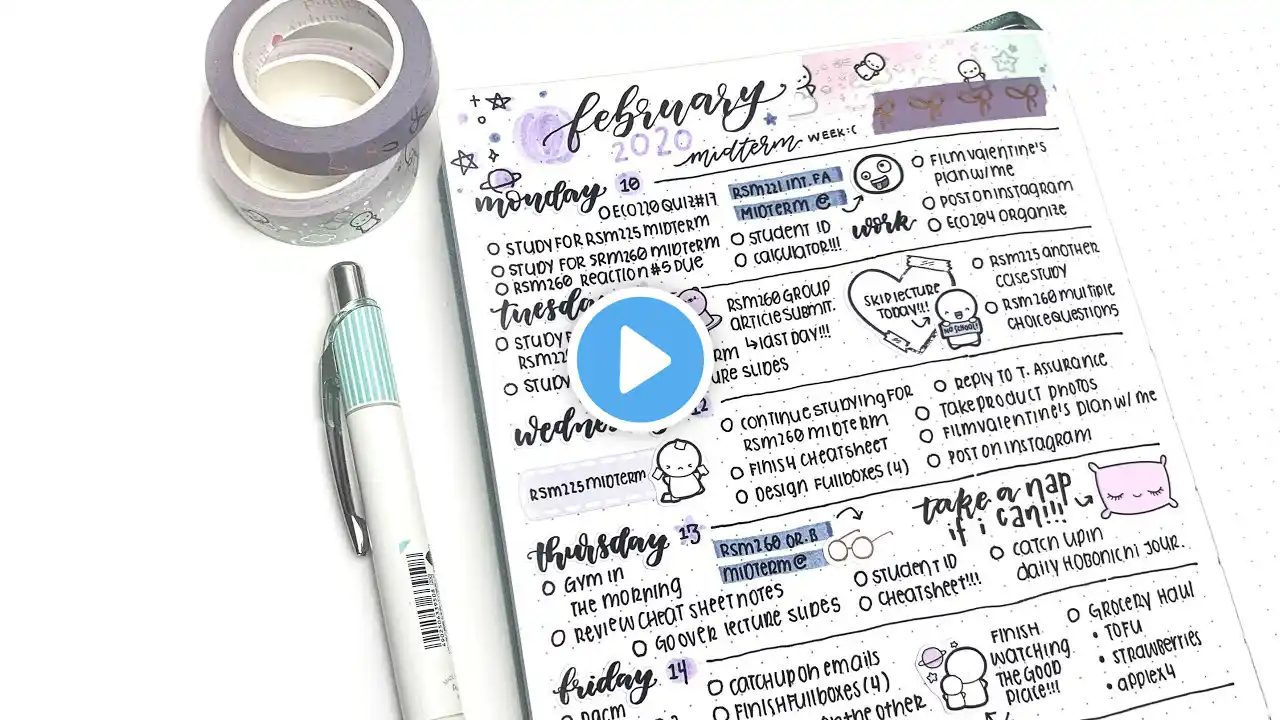 february
2020
midterm WEEK:C
monday 10
ECO220 QUIZ#17
STUDY FOR RSM225 MIDTERM
STUDY FOR SRM260 MIDTERM
RSM260 REACTION #5 DUE
RSM221 INT. FA
MIDTERM @
STUDENT ID
CALCULATOR!!!
work
FILM VALENTINE'S
PLAN W/ ME
POST ON INSTAGRAM
ECO204 ORGANIZE
tuesday
STUDY
STUDY
RSM260 GROUP
ARTICLE SUBMIT.
↳ LAST DAY!!!
SLIDES
SKIP LECTURE
TODAY!!!
NO SCHOOL!
RSM225 ANOTHER
CASE STUDY
RSM260 MULTIPLE
CHOICE QUESTIONS
12
RSM225 MIDTERM
CONTINUE STUDYING FOR
RSM260 MIDTERM
FINISH CHEATSHEET
DESIGN FULLBOXES (4)
REPLY TO T. ASSURANCE
TAKE PRODUCT PHOTOS
FILM VALENTINE'S PLAN W/ ME
POST ON INSTAGRAM
thursday 13
GYM IN
THE MORNING
REVIEW CHEAT SHEET NOTES
GO OVER LECTURE SLIDES
RSM260 OR.B
MIDTERM @
STUDENT ID
CHEATSHEET!!!
take a nap
if i can!!!
CATCH UP IN
DAILY HOBONICHI JOUR.
friday 14
CATCH UP ON EMAILS
FINISH FULLBOXES (4)
THE OTHER
FINISH
WATCHING
THE GOOD
PLACE!!!
GROCERY HAUL
• TOFU
• STRAWBERRIES
• APPLEX4